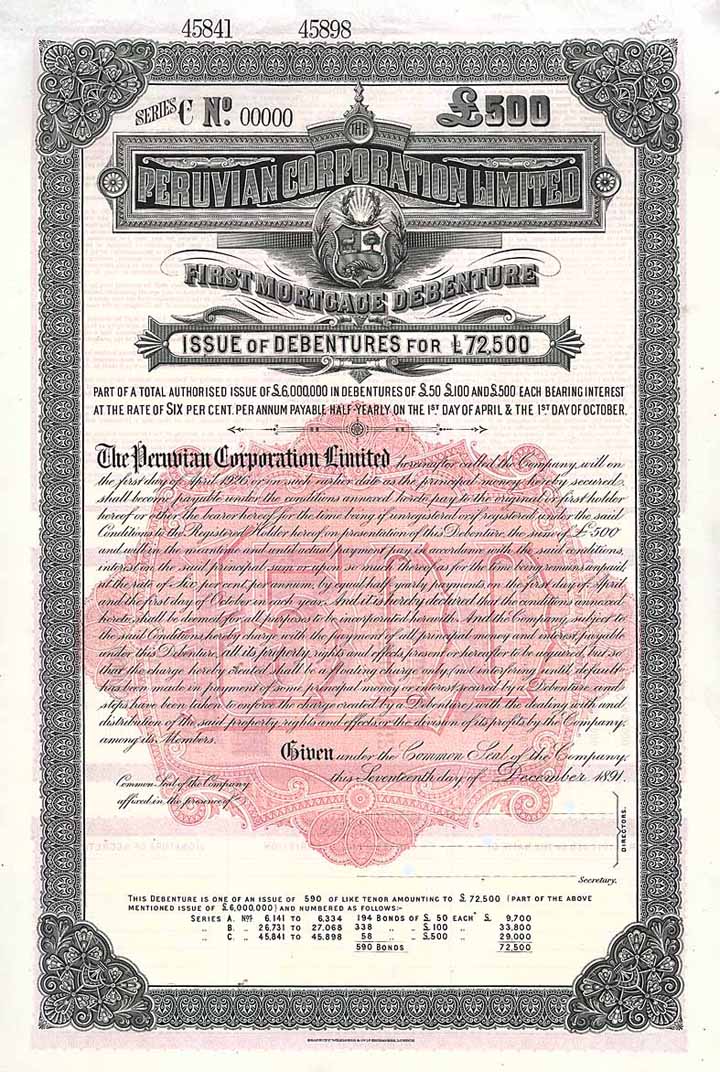 45841 45898
SERIES C No. 00000 £500
THE
PERUVIAN CORPORATION LIMITED
FIRST MORTGAGE DEBENTURE
ISSUE OF DEBENTURES FOR £72,500
PART OF A TOTAL AUTHORISED ISSUE OF £6,000,000 IN DEBENTURES OF £50 £100 AND £500 EACH BEARING INTEREST
AT THE RATE OF SIX PER CENT. PER ANNUM PAYABLE HALF-YEARLY ON THE 1ST DAY OF APRIL & THE 1ST DAY OF OCTOBER.
The Peruvian Corporation Limited hereinafter called the Company, will on
the first day of April 1926, or on such earlier date as the principal money hereby secured
shall become payable under the conditions annexed hereto, pay to the original or first holder
hereof or other the bearer hereof for the time being if unregistered or if registered under the said
Conditions to the Registered Holder hereof on presentation of this Debenture, the sum of £500
and will in the meantime and until actual payment pay in accordance with the said conditions,
interest on the said principal sum or upon so much thereof as for the time being remains unpaid
at the rate of Six per cent, per annum, by equal half-yearly payments, on the first day of April
and the first day of October in each year. And it is hereby declared that the conditions annexed
hereto, shall be deemed for all purposes to be incorporated herewith. And the Company, subject to
the said Conditions hereby charge with the payment of all principal money and interest, payable
under this Debenture, all its property, rights and effects, present or hereafter to be acquired, but so
that the charge hereby created shall be a floating charge only, (not interfering until default
has been made in payment of some principal money or interest secured by a Debenture and
steps have been taken to enforce the charge created by a Debenture) with the dealing with and
distribution of the said property, rights and effects, or the division of its profits by the Company,
among its Members.
Given under the Common Seal of the Company
this Seventeenth day of December 1891.
Common Seal of the Company
affixed in the presence of
DIRECTORS.
Secretary.
THIS DEBENTURE IS ONE OF AN ISSUE OF 590 OF LIKE TENOR AMOUNTING TO £72,500 (PART OF THE ABOVE
MENTIONED ISSUE OF £6,000,000) AND NUMBERED AS FOLLOWS:-
SERIES A. Nos. 6,141 TO 6,334 194 BONDS OF £50 EACH £ 9,700
" B. " 26,731 TO 27,068 338 " " £100 " 33,800
" C. " 45,841 TO 45,898 58 " " £500 " 29,000
590 BONDS 72,500